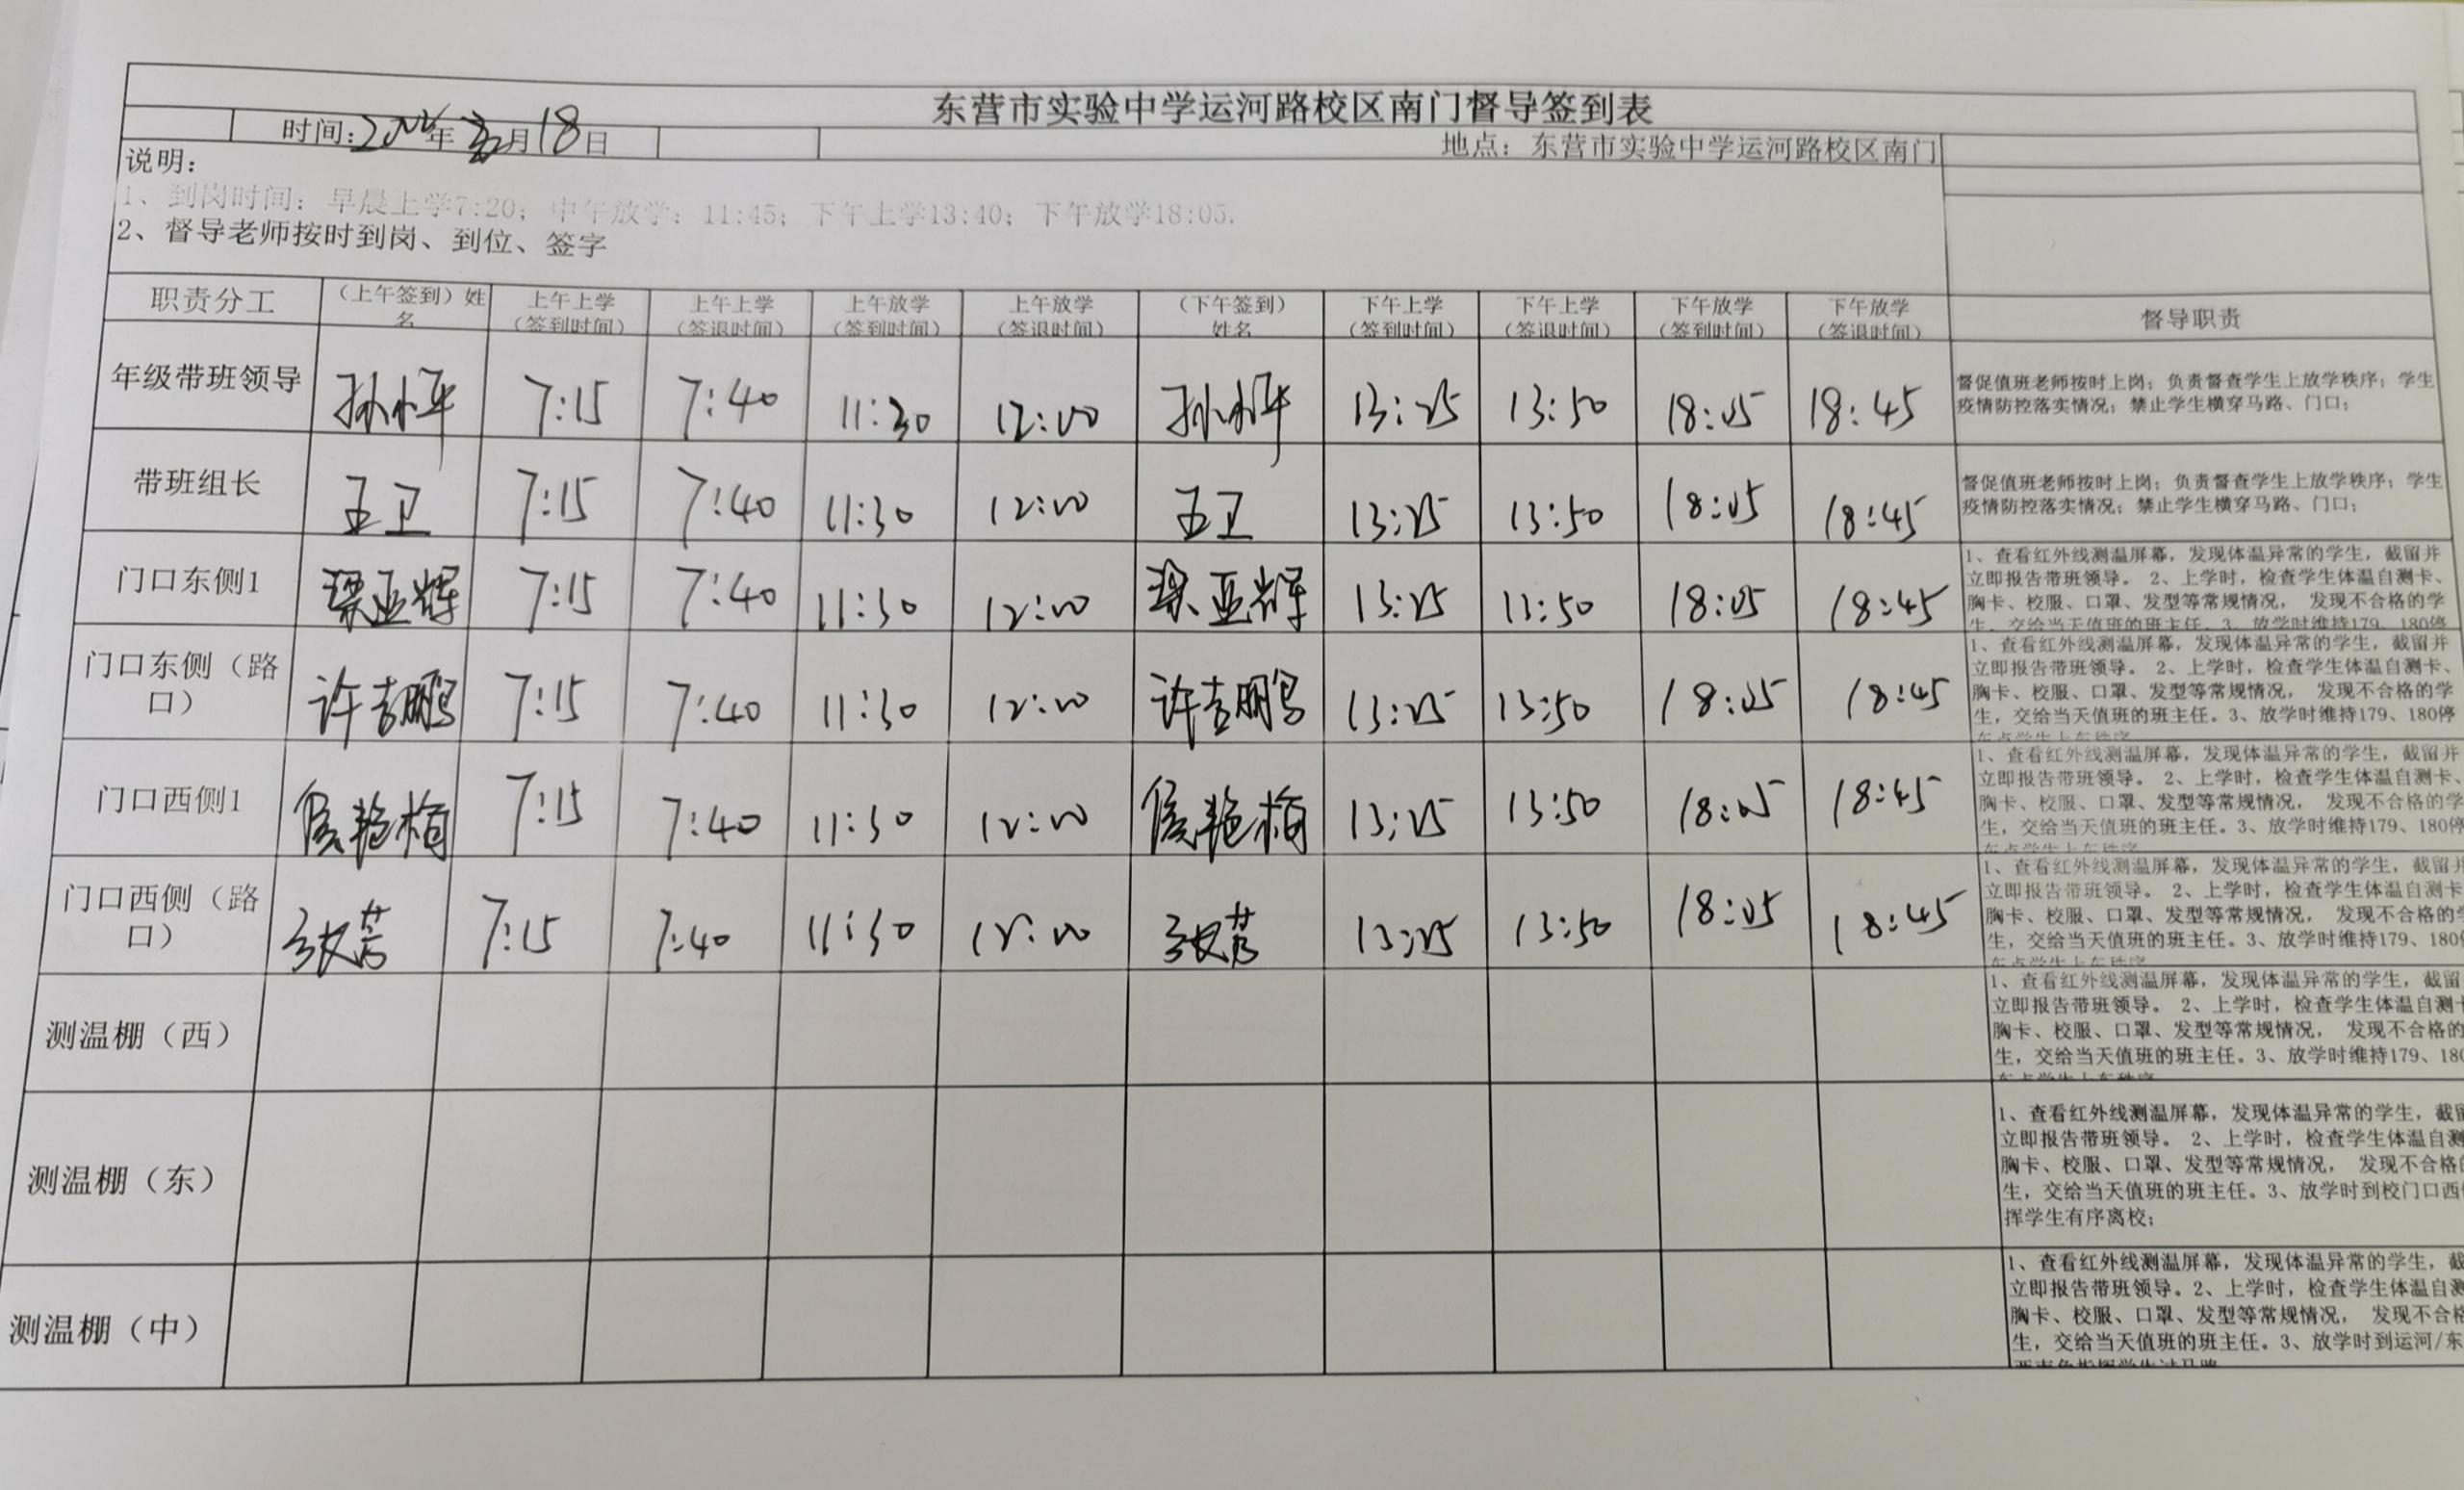 东营市实验中学运河路校区南门督导签到表
时间: 年 月18日
地点：东营市实验中学运河路校区南门
说明：
1、到岗时间：早晨上学7:20；中午放学：11:45；下午上学13:40；下午放学18:05.
2、督导老师按时到岗、到位、签字
职责分工 （上午签到）姓名 上午上学（签到时间） 上午上学（签退时间） 上午放学（签到时间） 上午放学（签退时间） （下午签到）姓名 下午上学（签到时间） 下午上学（签退时间） 下午放学（签到时间） 下午放学（签退时间） 督导职责
年级带班领导 孙小平 7:15 7:40 11:30 12:00 孙小平 13:25 13:50 18:05 18:45
督促值班老师按时上岗；负责督查学生上放学秩序；学生
疫情防控落实情况；禁止学生横穿马路、门口；
带班组长 王卫 7:15 7:40 11:30 12:00 王卫 13:25 13:50 18:05 18:45
督促值班老师按时上岗；负责督查学生上放学秩序；学生
疫情防控落实情况；禁止学生横穿马路、门口；
门口东侧1 梁亚辉 7:15 7:40 11:30 12:00 梁亚辉 13:25 13:50 18:05 18:45
1、查看红外线测温屏幕，发现体温异常的学生，截留并
立即报告带班领导。 2、上学时，检查学生体温自测卡、
胸卡、校服、口罩、发型等常规情况， 发现不合格的学
生，交给当天值班的班主任。3、放学时维持179、180停
门口东侧（路口） 许吉鹏 7:15 7:40 11:30 12:00 许吉鹏 13:25 13:50 18:05 18:45
1、查看红外线测温屏幕，发现体温异常的学生，截留并
立即报告带班领导。 2、上学时，检查学生体温自测卡、
胸卡、校服、口罩、发型等常规情况， 发现不合格的学
生，交给当天值班的班主任。3、放学时维持179、180停
车点学生上车秩序
门口西侧1 侯艳梅 7:15 7:40 11:30 12:00 侯艳梅 13:25 13:50 18:05 18:45
1、查看红外线测温屏幕，发现体温异常的学生，截留并
立即报告带班领导。 2、上学时，检查学生体温自测卡、
胸卡、校服、口罩、发型等常规情况， 发现不合格的学
生，交给当天值班的班主任。3、放学时维持179、180停
车点学生上车秩序
门口西侧（路口） 7:15 7:40 11:30 12:00 13:25 13:50 18:05 18:45
1、查看红外线测温屏幕，发现体温异常的学生，截留并
立即报告带班领导。 2、上学时，检查学生体温自测卡
胸卡、校服、口罩、发型等常规情况， 发现不合格的学
生，交给当天值班的班主任。3、放学时维持179、180停
车点学生上车秩序
测温棚（西）
1、查看红外线测温屏幕，发现体温异常的学生，截留
立即报告带班领导。 2、上学时，检查学生体温自测卡
胸卡、校服、口罩、发型等常规情况， 发现不合格的
生，交给当天值班的班主任。3、放学时维持179、180
车点学生上车秩序
测温棚（东）
1、查看红外线测温屏幕，发现体温异常的学生，截留
立即报告带班领导。 2、上学时，检查学生体温自测
胸卡、校服、口罩、发型等常规情况， 发现不合格
生，交给当天值班的班主任。3、放学时到校门口西
挥学生有序离校；
测温棚（中）
1、查看红外线测温屏幕，发现体温异常的学生，截
立即报告带班领导。2、上学时，检查学生体温自测
胸卡、校服、口罩、发型等常规情况， 发现不合格
生，交给当天值班的班主任。3、放学时到运河/东